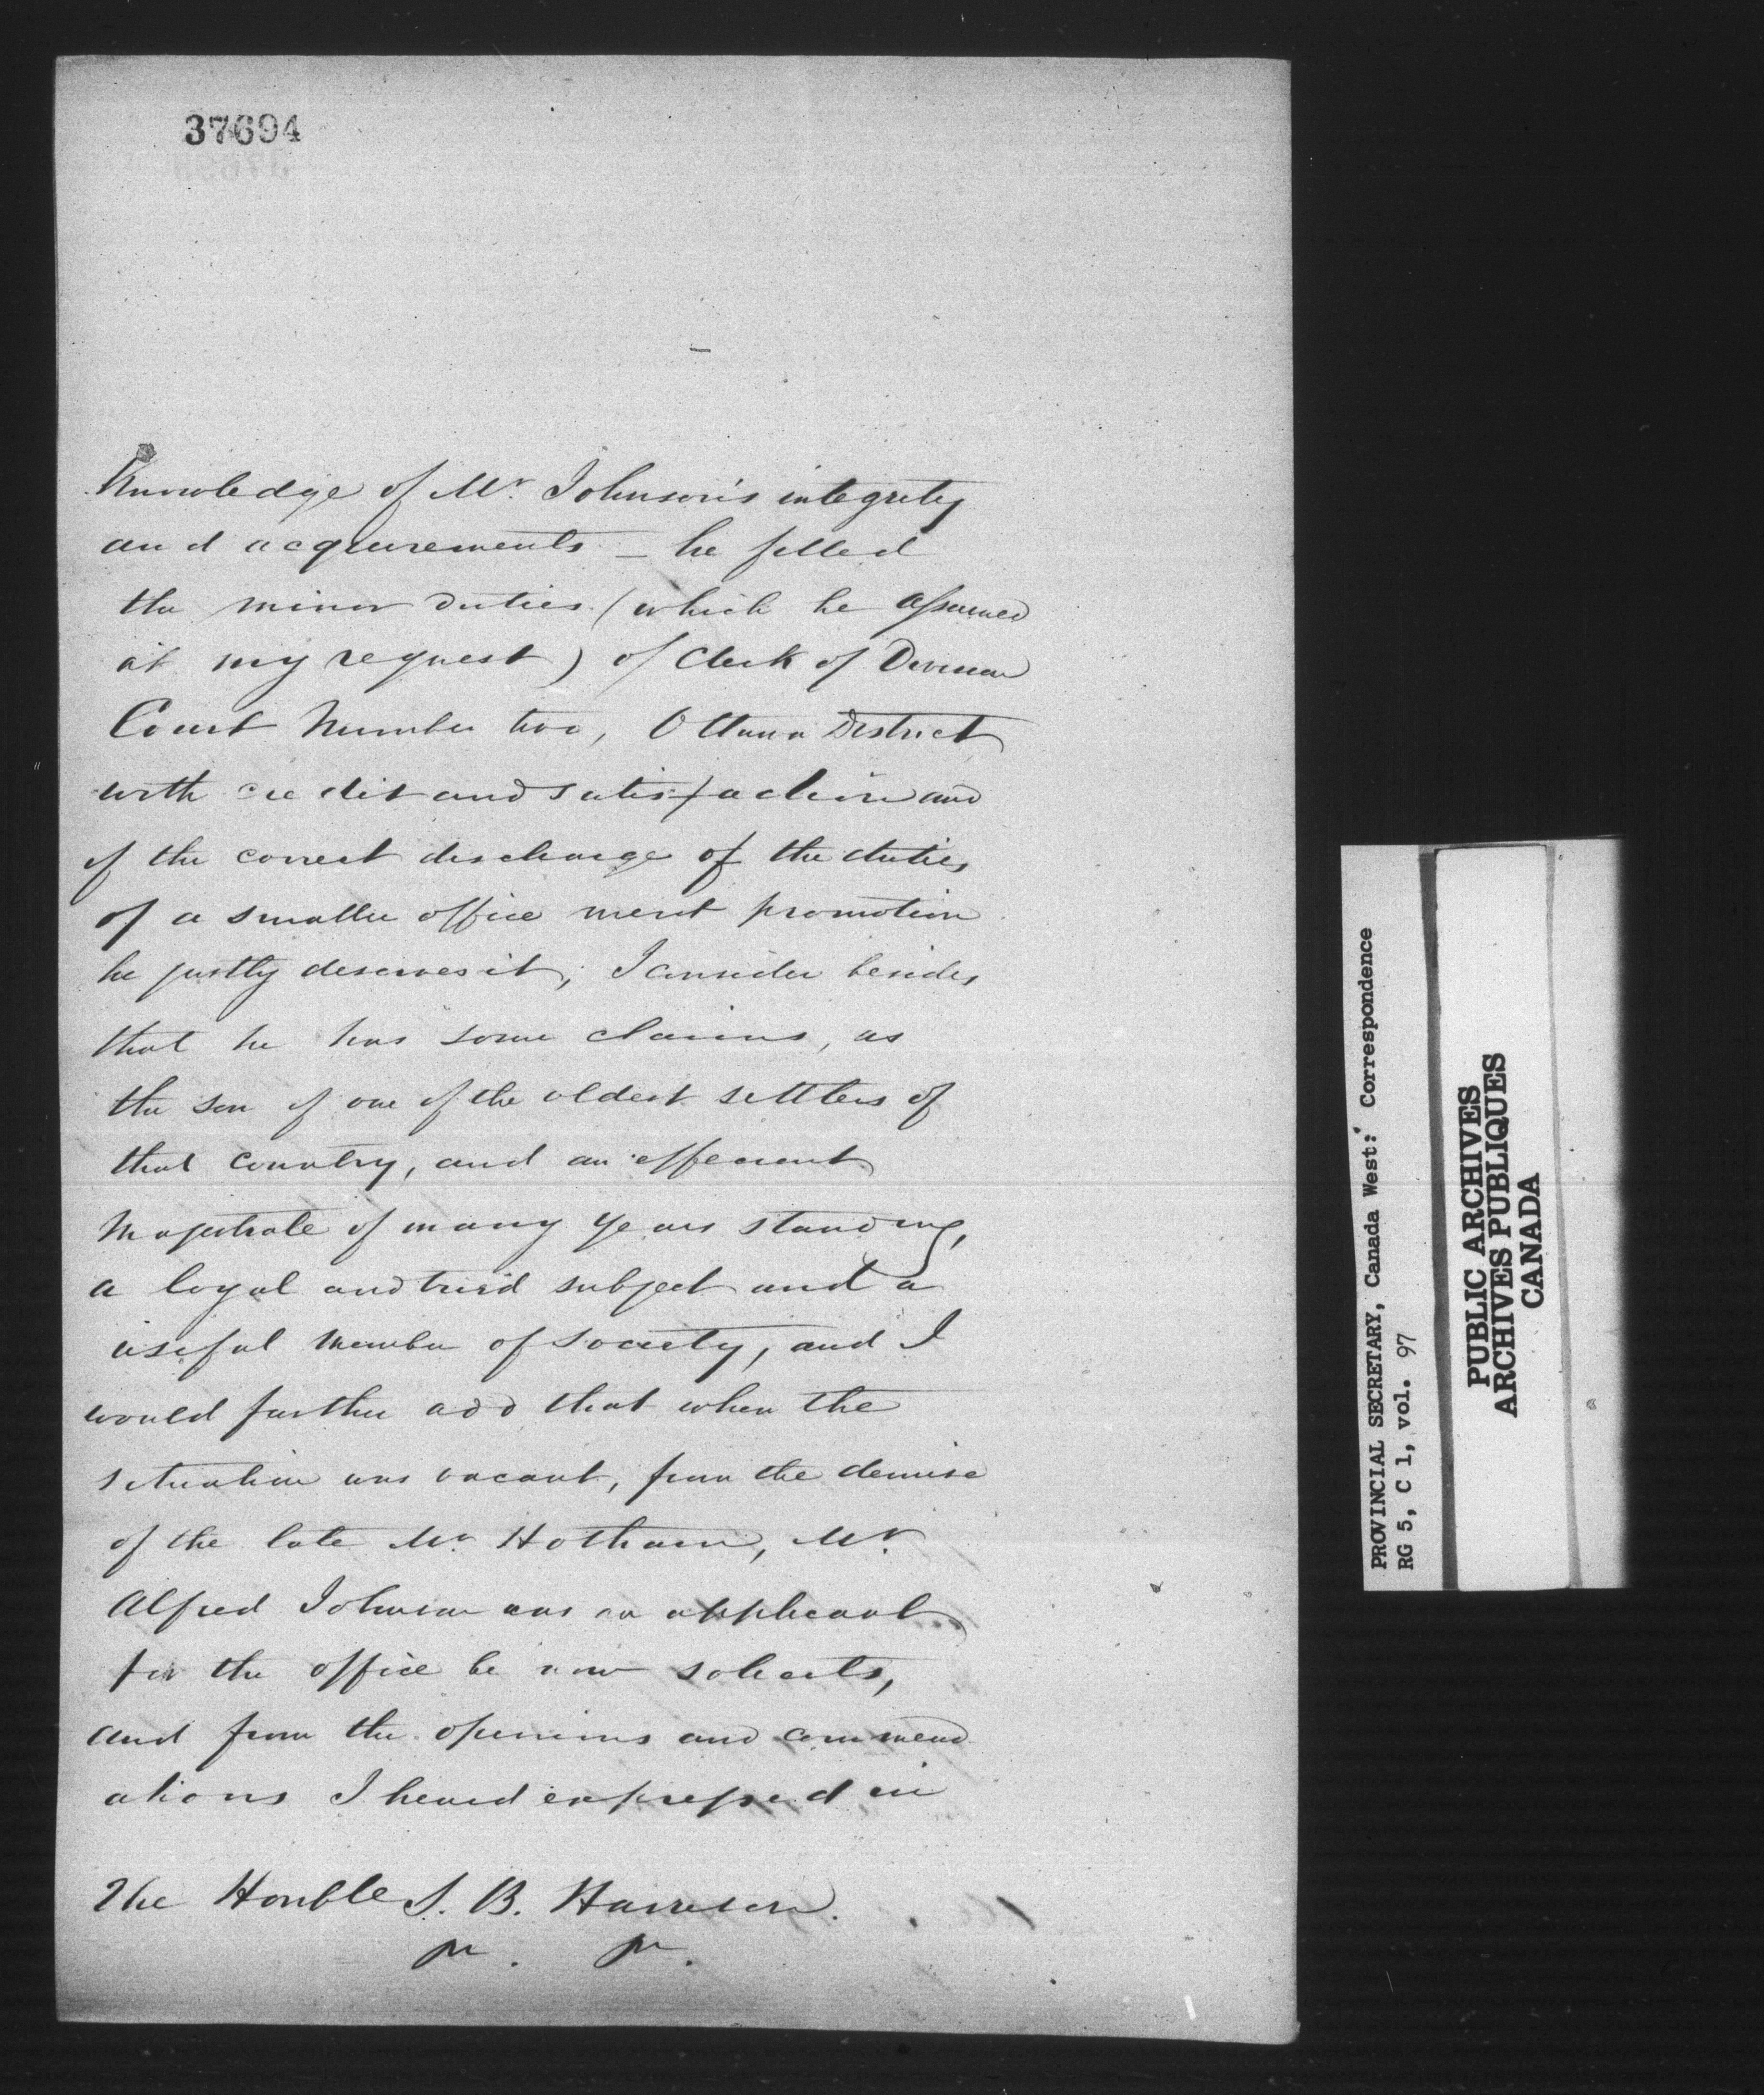 37694
Knowledge of Mr. Johnson's integrity
and acquirements — he filled
the minor duties (which he assumed
at my request) of Clerk of Division
Court Number two, Ottawa District
with credit and satisfaction and
if the correct discharge of the duties
of a smaller office merit promotion
he justly deserves it; I consider besides
that he has some claims, as
the son of one of the oldest settlers of
that country, and an efficient
Magistrate of many years standing,
a loyal and tried subject and a
useful member of society, and I
would further add that when the
situation was vacant, from the demise
of the late Mr. Hotham, Mr.
Alfred Johnson was an applicant
for the office he now solicits,
and from the opinions and commend
ations I heard expressed in
The Honble S. B. Harrison.
PROVINCIAL SECRETARY, Canada West: Correspondence
RG 5, C 1, vol. 97
PUBLIC ARCHIVES
ARCHIVES PUBLIQUES
CANADA